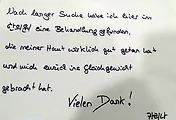 Nach langer Suche habe ich hier im
eine Behandlung gefunden,
die meiner Haut wirklich gut getan hat
und mich zurück ins Gleichgewicht
gebracht hat.
Vielen Dank!